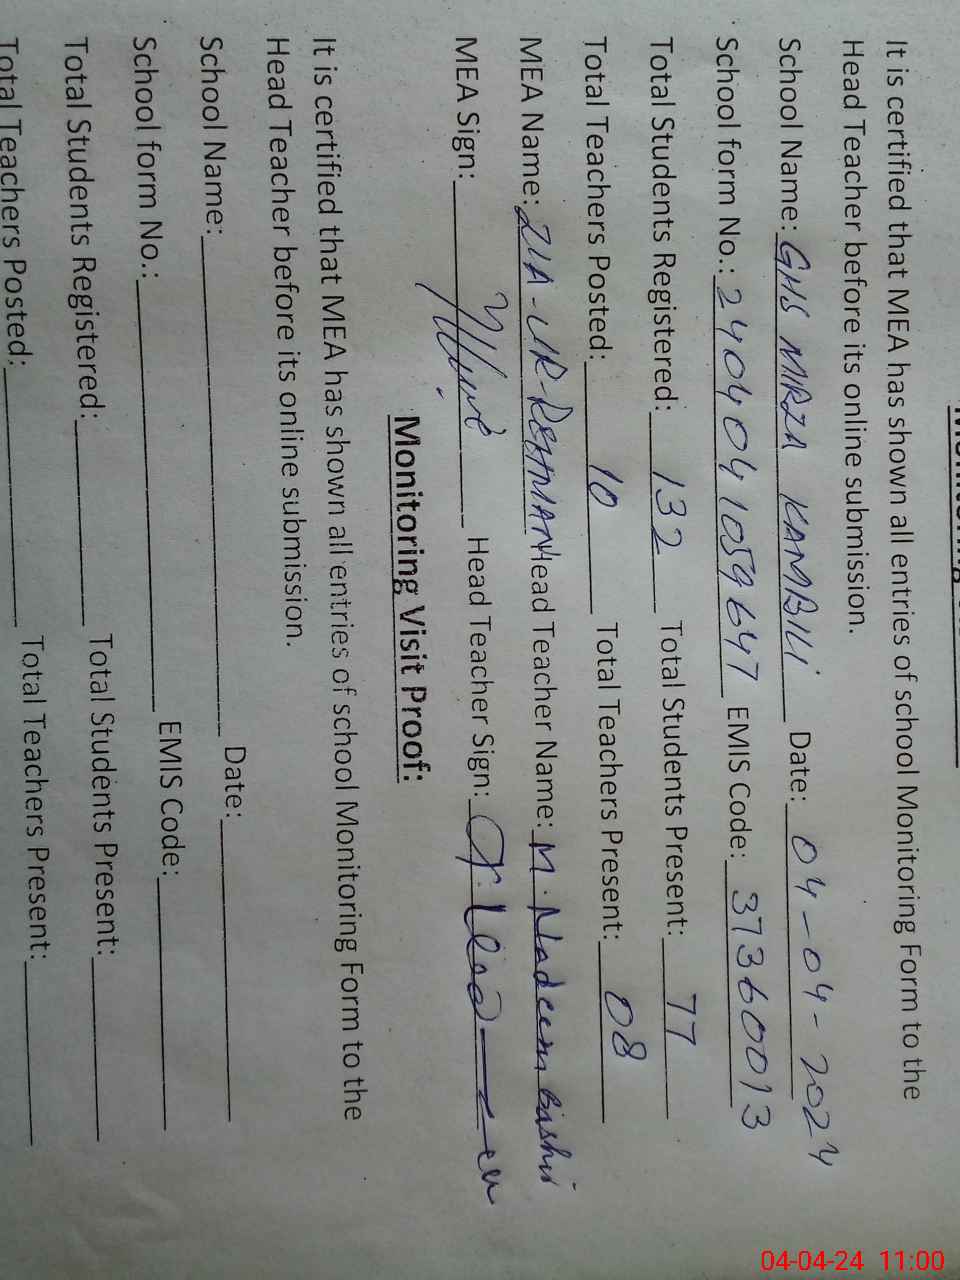 It is certified that MEA has shown all entries of school Monitoring Form to the
Head Teacher before its online submission.
School Name: GHS MIRZA KAMBILI Date: 04-04-2024
School form No.: 2404041059647 EMIS Code: 37360013
Total Students Registered: 132 Total Students Present: 77
Total Teachers Posted: 10 Total Teachers Present: 08
MEA Name: ZIA-UR-REHMAN Head Teacher Name: M. Nadeem Bashir
MEA Sign: Head Teacher Sign:
Monitoring Visit Proof:
It is certified that MEA has shown all entries of school Monitoring Form to the
Head Teacher before its online submission.
School Name: Date:
School form No.: EMIS Code:
Total Students Registered: Total Students Present:
Total Teachers Posted: Total Teachers Present:
04-04-24 11:00